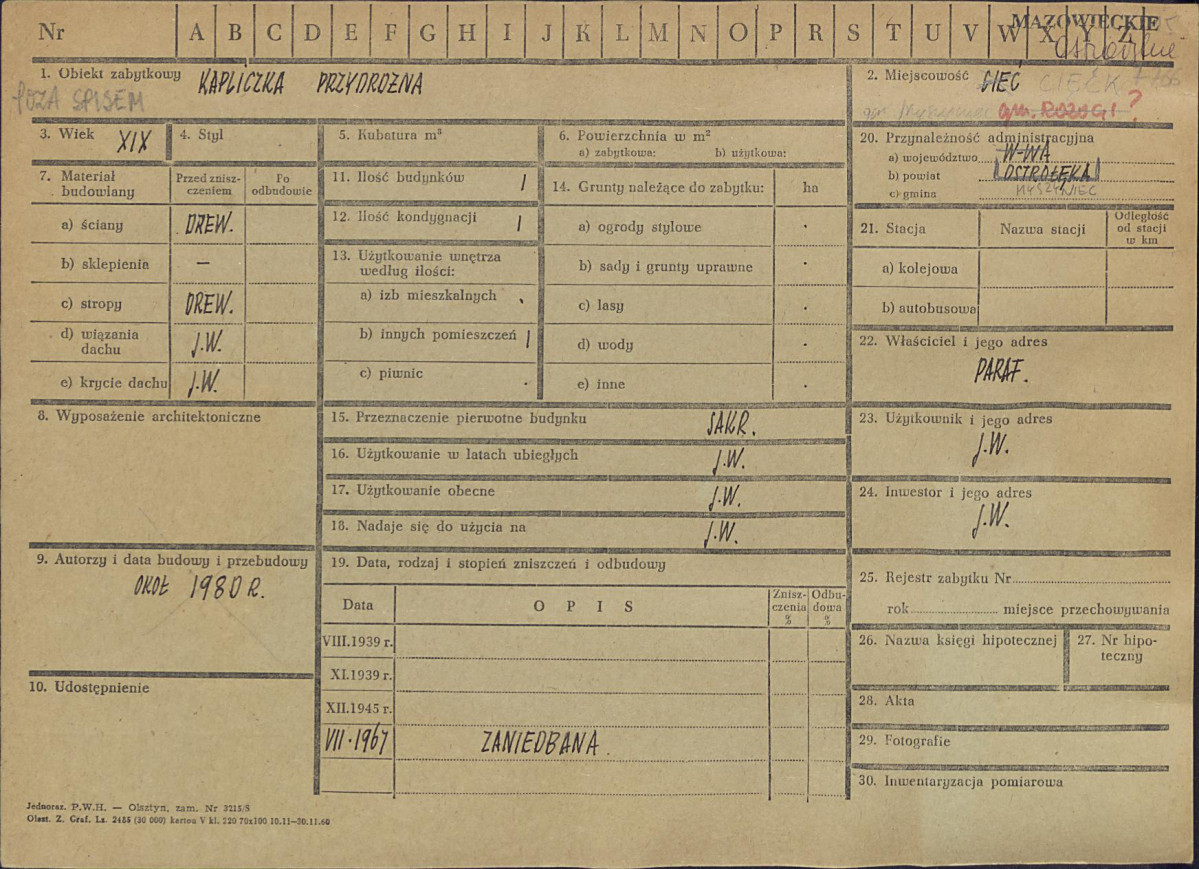 Nr A B C D E F G H I J K L M N O P R S T U V W X Y Z
MAZOWIECKIE
1. Obiekt zabytkowy KAPLICZKA PRZYDROŻNA
POZA SPISEM
2. Miejscowość GIEĆ CIEĆK
gm. Myszyniec gm. ROZOGI?
3. Wiek XIX
4. Styl
5. Kubatura m³
6. Powierzchnia w m²
a) zabytkowa: b) użytkowa:
7. Materiał budowiany
Przed znisz-
czeniem
Po
odbudowie
a) ściany DREW.
b) sklepienia —
c) stropy DREW.
d) wiązania
dachu J.W.
e) krycie dachu J.W.
8. Wyposażenie architektoniczne
9. Autorzy i data budowy i przebudowy
OKOŁ 1980 R.
10. Udostępnienie
11. Ilość budynków 1
12. Ilość kondygnacji 1
13. Użytkowanie wnętrza
według ilości:
a) izb mieszkalnych
b) innych pomieszczeń 1
c) piwnic
14. Grunty należące do zabytku: ha
a) ogrody stylowe
b) sady i grunty uprawne
c) lasy
d) wody
e) inne
15. Przeznaczenie pierwotne budynku SAKR.
16. Użytkowanie w latach ubiegłych J.W.
17. Użytkowanie obecne J.W.
18. Nadaje się do użycia na J.W.
19. Data, rodzaj i stopień zniszczeń i odbudowy
Data
O P I S
Znisz-
czenia
%
Odbu-
dowa
%
VIII.1939 r.
XI.1939 r.
XII.1945 r.
VII.1967 ZANIEDBANA.
20. Przynależność administracyjna
a) województwo W-WA
b) powiat OSTROŁĘKA
c) gmina MYSZYNIEC
21. Stacja
Nazwa stacji
Odległość
od stacji
w km
a) kolejowa
b) autobusowa
22. Właściciel i jego adres
PARAF.
23. Użytkownik i jego adres
J.W.
24. Inwestor i jego adres
J.W.
25. Rejestr zabytku Nr
rok miejsce przechowywania
26. Nazwa księgi hipotecznej
27. Nr hipo-
teczny
28. Akta
29. Fotografie
30. Inwentaryzacja pomiarowa
Jednoraz. P.W.H. — Olsztyn, zam. Nr 3215/S
Olszt. Z. Graf. Lz. 2485 (30 000) karton V kl. 220 70x100 10.11—30.11.60